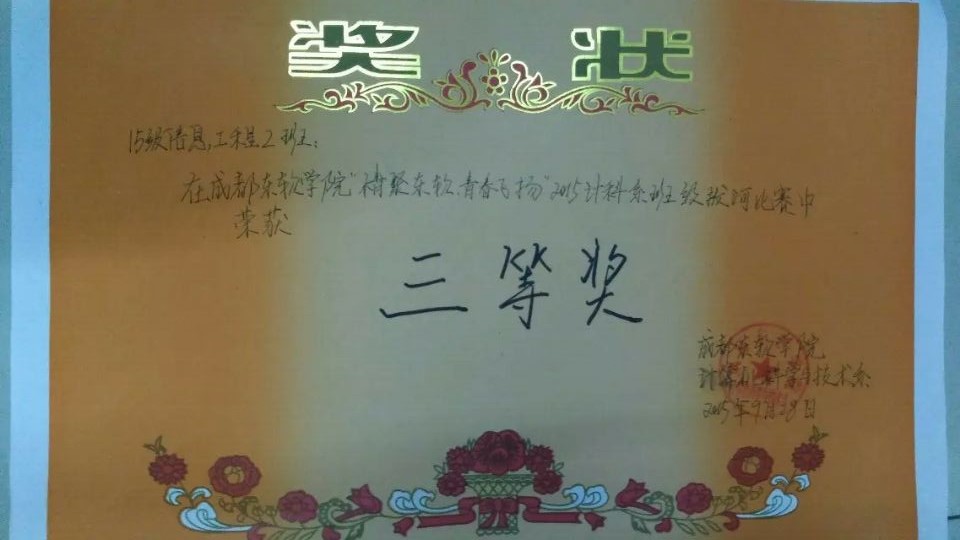 奖状
15级信息工程2班:
在成都东软学院"情聚东软,青春飞扬"2015计科系班级拔河比赛中
荣获
三等奖
成都东软学院
计算机科学与技术系
2015年9月28日